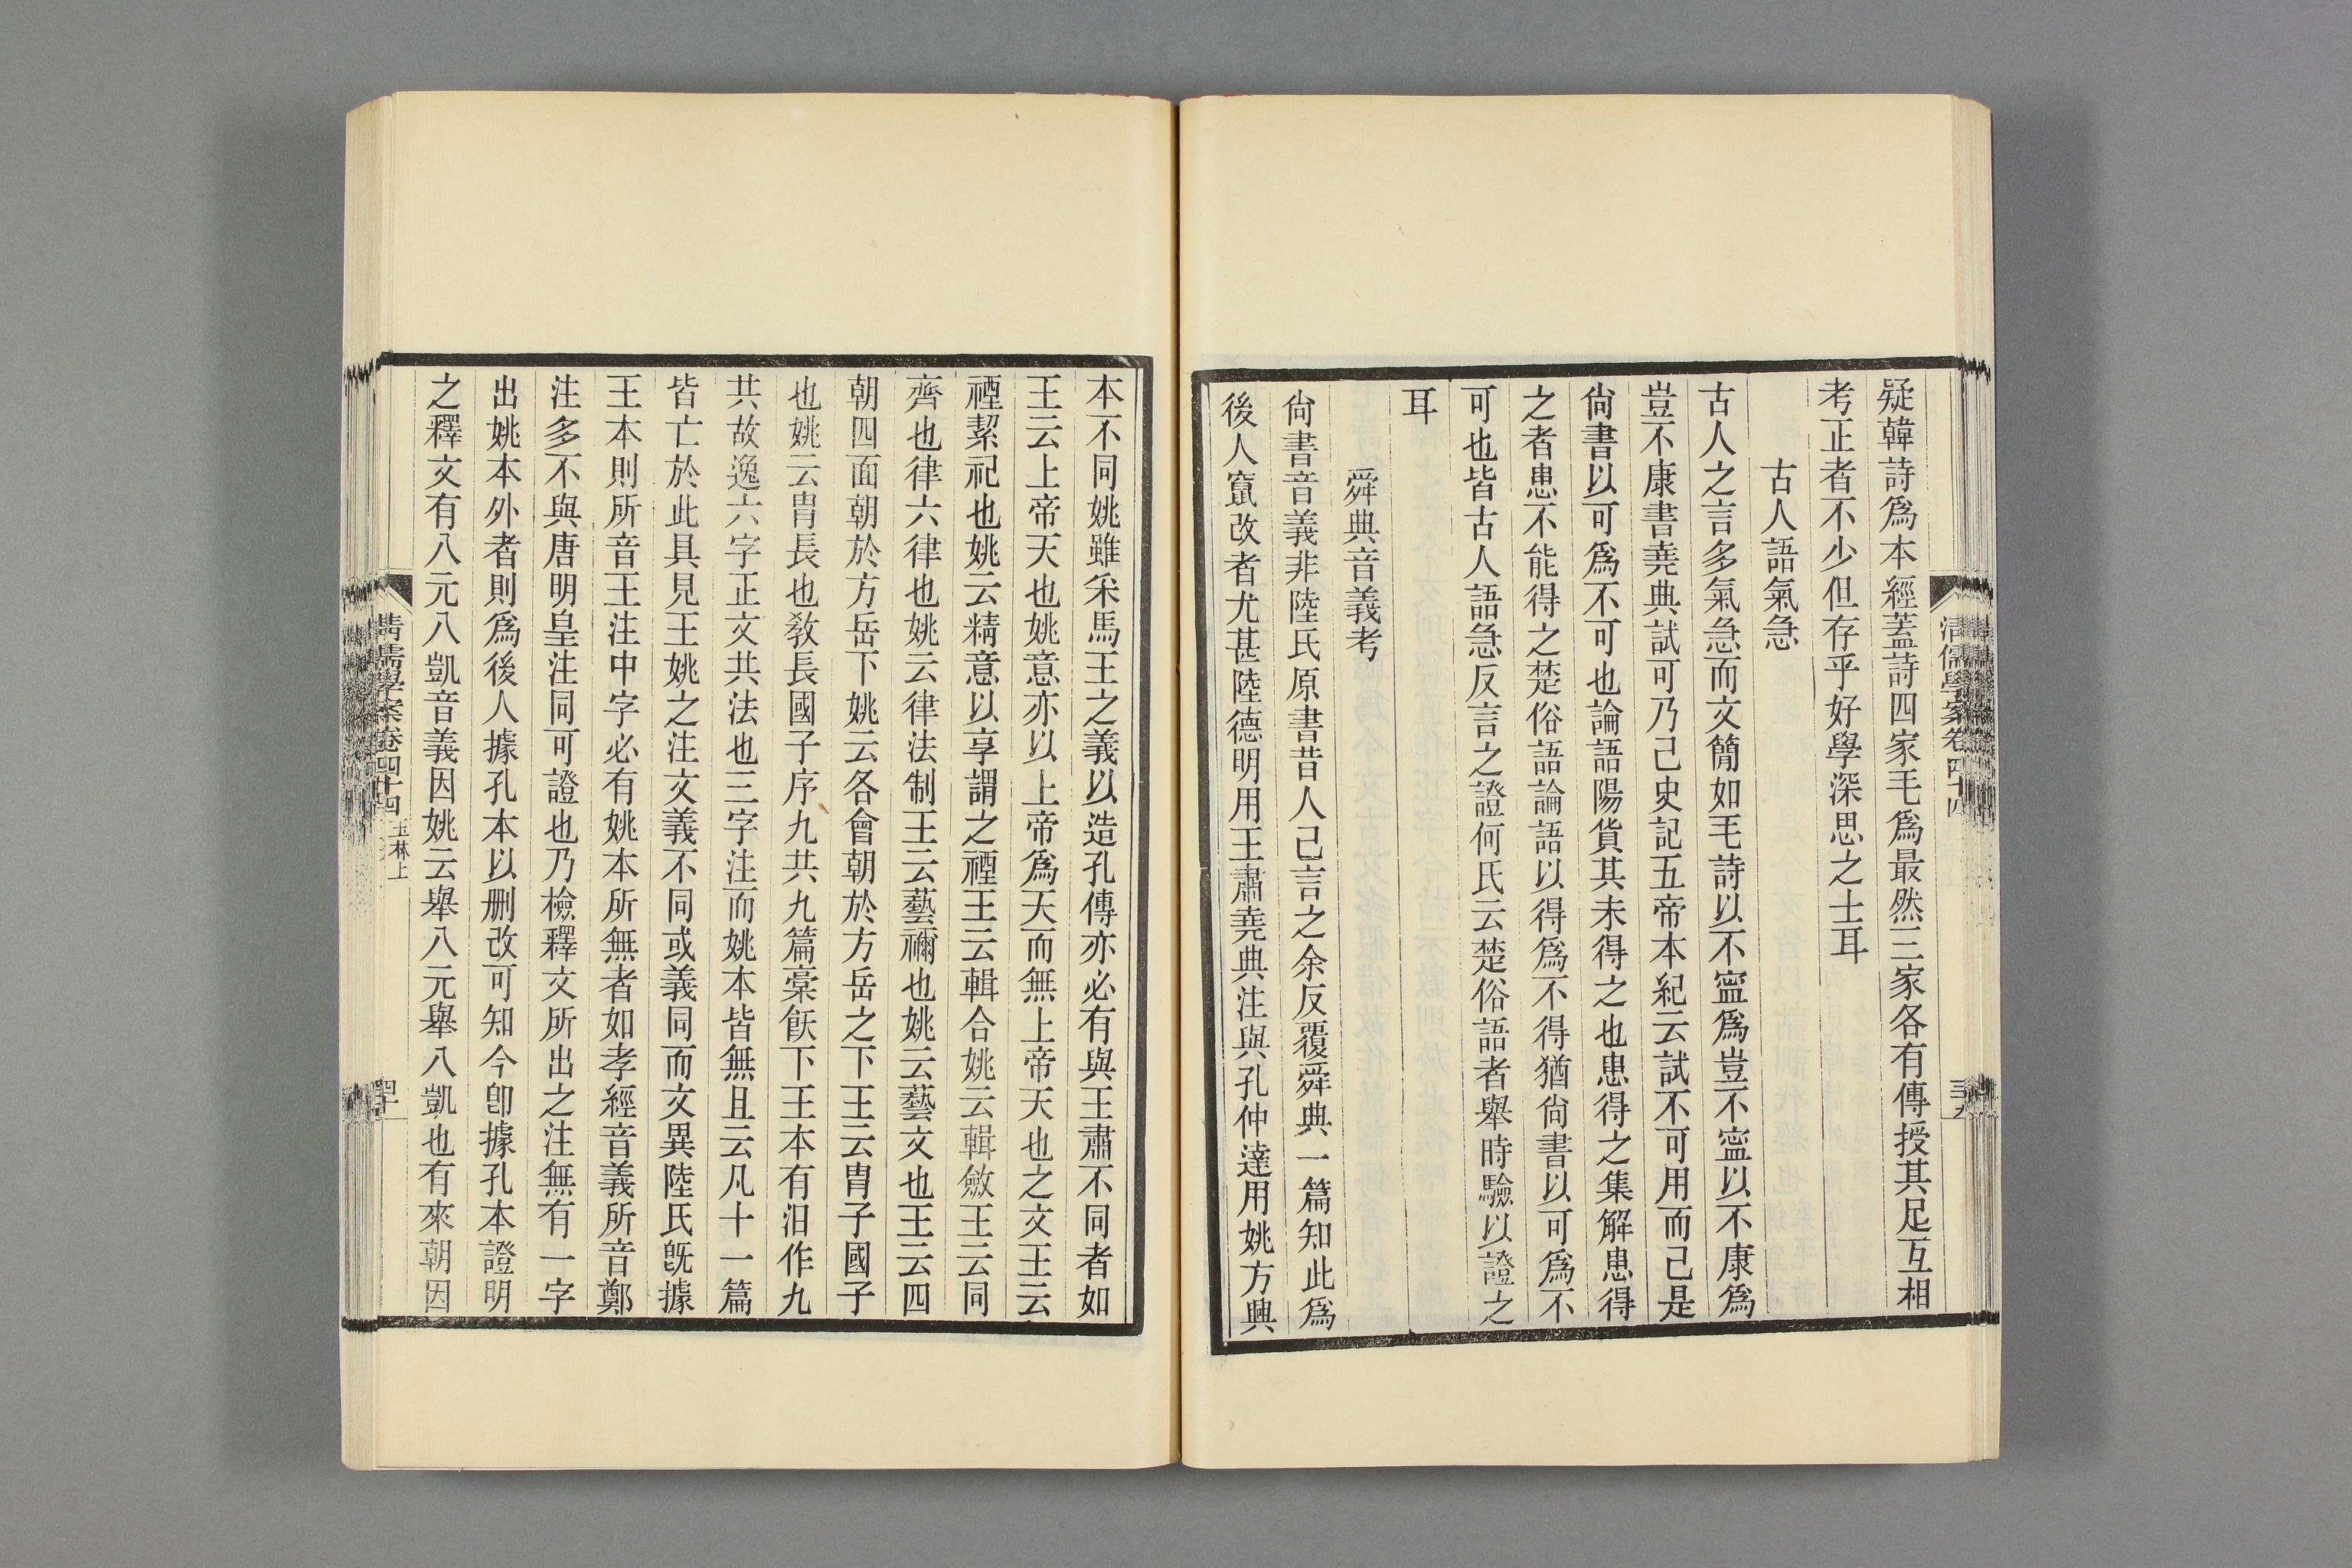 疑韓詩爲本經蓋詩四家毛爲最然三家各有傳授其足互相
考正者不少但存乎好學深思之士耳
古人語氣急
古人之言多氣急而文簡如毛詩以不寍爲豈不寍以不康爲
豈不康書堯典試可乃已史記五帝本紀云試不可用而已是
尙書以可爲不可也論語陽貨其未得之也患得之集解患得
之者患不能得之楚俗語論語以得爲不得猶尙書以可爲不
可也皆古人語急反言之證何氏云楚俗語者舉時驗以證之
耳
舜典音義考
尙書音義非陸氏原書昔人已言之余反覆舜典一篇知此爲
後人竄改者尤甚陸德明用王肅堯典注與孔仲達用姚方興
本不同姚雖采馬王之義以造孔傳亦必有與王肅不同者如
王云上帝天也姚意亦以上帝爲天而無上帝天也之文王云
禋絜祀也姚云精意以享謂之禋王云輯合姚云輯斂王云同
齊也律六律也姚云律法制王云藝禰也姚云藝文也王云四
朝四面朝於方岳下姚云各會朝於方岳之下王云胄子國子
也姚云胄長也敎長國子序九共九篇槀飫下王本有汩作九
共故逸六字正文共法也三字注而姚本皆無且云凡十一篇
皆亡於此具見王姚之注文義不同或義同而文異陸氏旣據
王本則所音王注中字必有姚本所無者如孝經音義所音鄭
注多不與唐明皇注同可證也乃檢釋文所出之注無有一字
出姚本外者則爲後人據孔本以刪改可知今卽據孔本證明
之釋文有八元八凱音義因姚云舉八元舉八凱也有來朝因
淸儒學案卷四十四
玉林上
四十
淸儒學案卷四十四
三十九